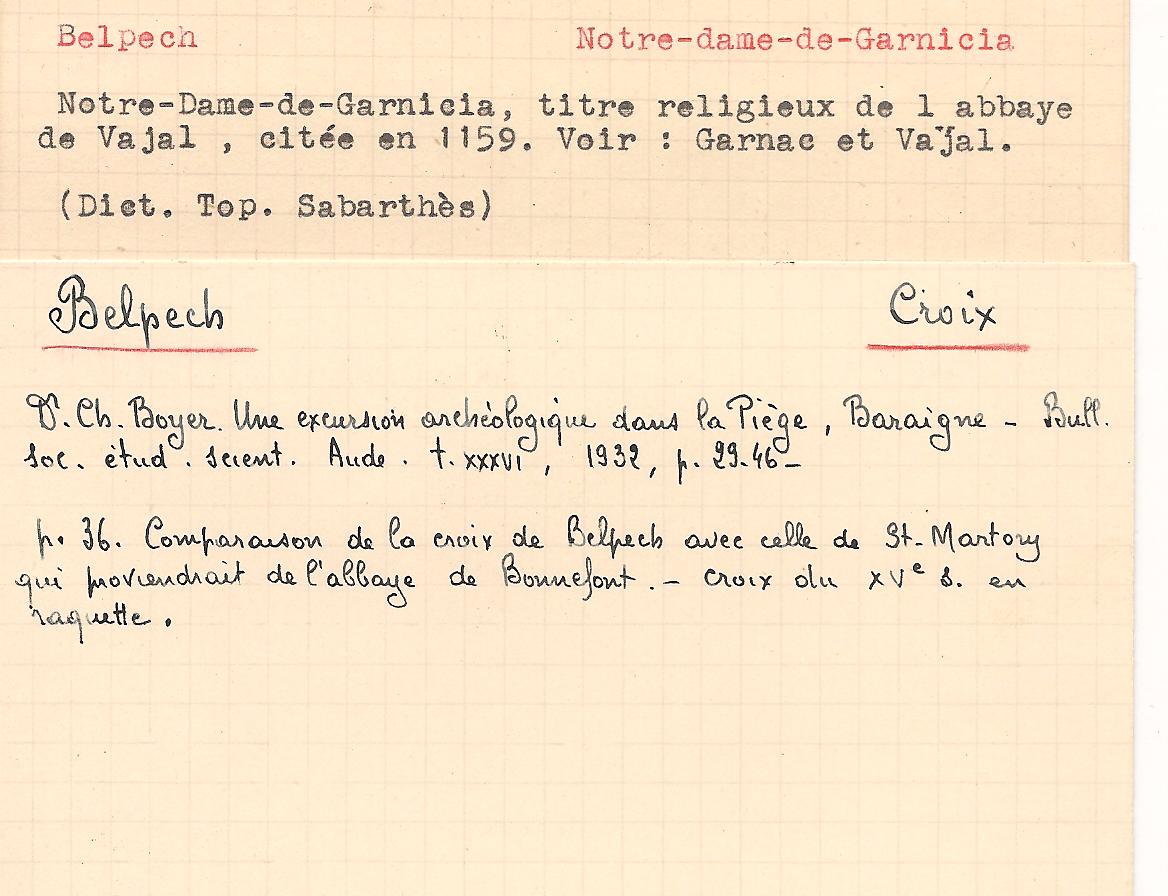 Belpech Notre-dame-de-Garnicia
Notre-Dame-de-Garnicia, titre religieux de l abbaye
de Vajal , citée en 1159. Voir : Garnac et Vajal.
(Dict. Top. Sabarthès)
Belpech Croix
Dr. Ch. Boyer. Une excursion archéologique dans la Piège, Baraigne - Bull.
soc. étud. scient. Aude. t. XXXVI, 1932, p. 29-46 -
p. 36. Comparaison de la croix de Belpech avec celle de St-Martory
qui proviendrait de l'abbaye de Bonnefont. - croix du XVe s. en
raquette.